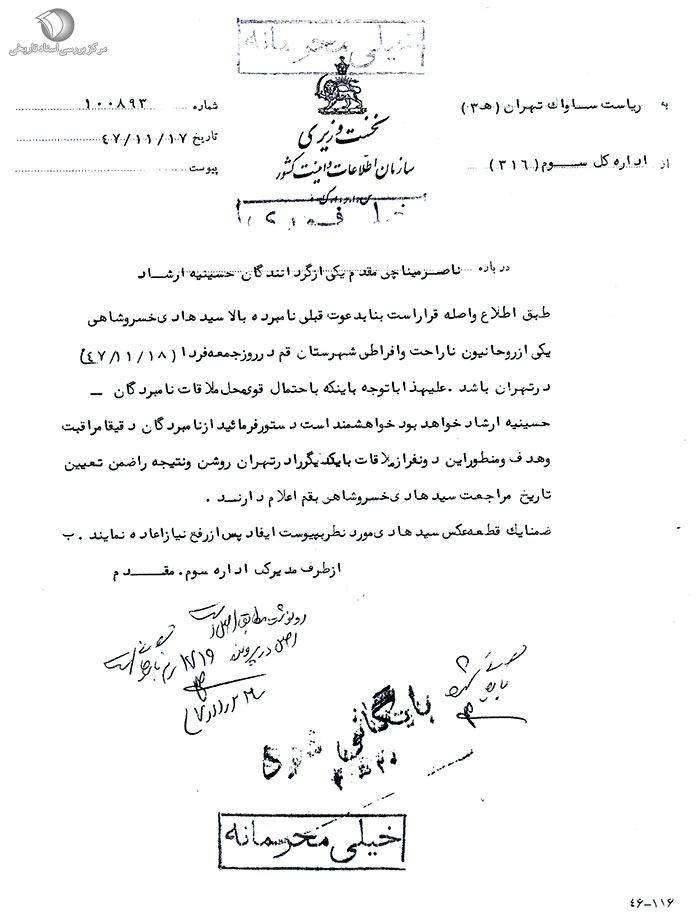 مرکز بررسی اسناد تاریخی
خیلی محرمانه
به ریاست ساواك تهران (ه‍ ۳)
از اداره کل سوم (۳۱٦)
نخست وزیری
سازمان اطلاعات و امنیت کشور
س.ا.و.ا.ك
شماره ۱۰۰۸۹۳
تاریخ ۴۷/۱۱/۱۷
پیوست
خیلی فوری
درباره ناصر میناچی مقدم یکی از گردانندگان حسینیه ارشاد
طبق اطلاع واصله قرار است بنا بدعوت قبلی نامبرده بالا سید هادی خسروشاهی
یکی از روحانیون ناراحت و افراطی شهرستان قم در روز جمعه فردا (۴۷/۱۱/۱۸)
در تهران باشد . علیهذا با توجه باینکه باحتمال قوی محل ملاقات نامبردگان ــ
حسینیه ارشاد خواهد بود خواهشمند است دستور فرمائید از نامبردگان دقیقا مراقبت
و هدف و منظور این دو نفر از ملاقات با یکدیگر را در تهران روشن و نتیجه را ضمن تعیین
تاریخ مراجعت سید هادی خسروشاهی بقم اعلام دارند .
ضمنا یك قطعه عکس سید هادی مورد نظر بپیوست ایفاد پس از رفع نیاز اعاده نمایند . ب
از طرف مدیر کل اداره سوم . مقدم
رونوشت مطابق اصل است
اصل در پرونده
بایگانی شود
بایگانی شود
خیلی محرمانه
۴٦-۱۱٦